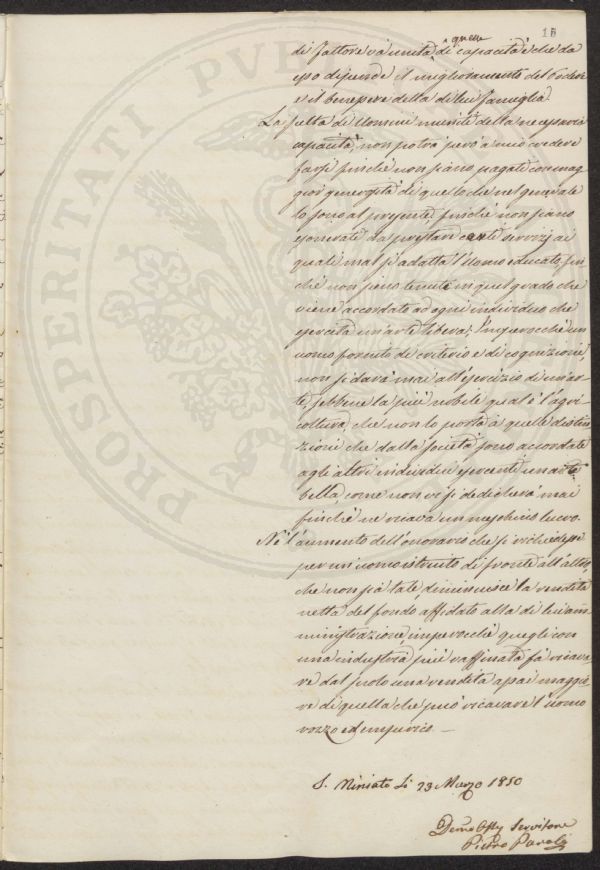 18
di Fattore và unita di quella capacità è che da
esso dipende il miglioramento del Podere
e il benessere della di lui famiglia.
La scelta di Uomini muniti della necessaria
capacità, non potrà però a mio credere
farsi finché non siano pagati con mag
gior generosità di quello che nel generale
lo sono al presente, finché non siano
esonerati da prestare certi servizj ai
quali mal si adatta l'Uomo educato, fin
ché non sieno tenuti in quel grado che
viene accordato ad ogni individuo che
esercita un'arte libera; Imperocché un
uomo fornito di criterio e di cognizioni
non si darà mai all'esercizio di un'ar
te, sebbene la più nobile qual è l'agri-
coltura, che non lo porta a quelle distin
zioni che dalla società sono accordate
agli altri individui esercenti un'arte
bella, come non vi si dedicherà mai
finché ne ricava un meschino lucro.
Né l'aumento dell'onorario che si richiedesse
per un uomo istruito di fronte all'altro,
che non sia tale, diminuisce la rendita
netta del fondo affidato alla di lui am
ministrazione, imperocché quegli con
una industria più raffinata fà ricava
re dal suolo una rendita assai maggio
re di quella che può ricavare l'uomo
rozzo ed empirico —
S. Miniato Li 23 Marzo 1850
Servitore
Pietro
PROSPERITATI PUBLICAE